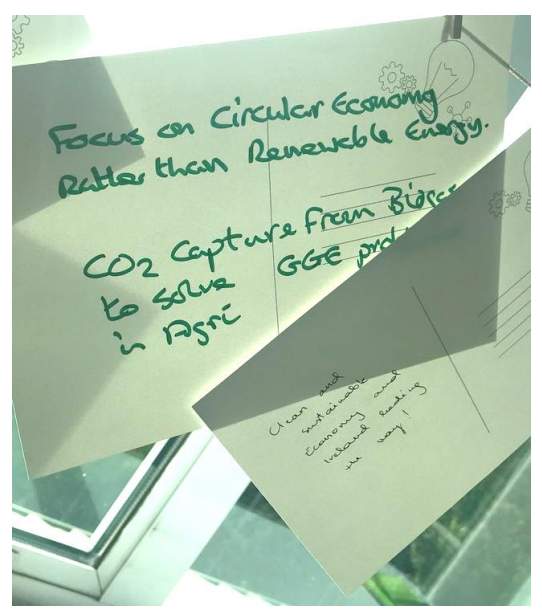 Focus on Circular Economy
Rather than Renewable Energy.
CO2 Capture From
to solve GGE
in Agri
Clean and
sustainable
Economy and
Ireland leading
the way!